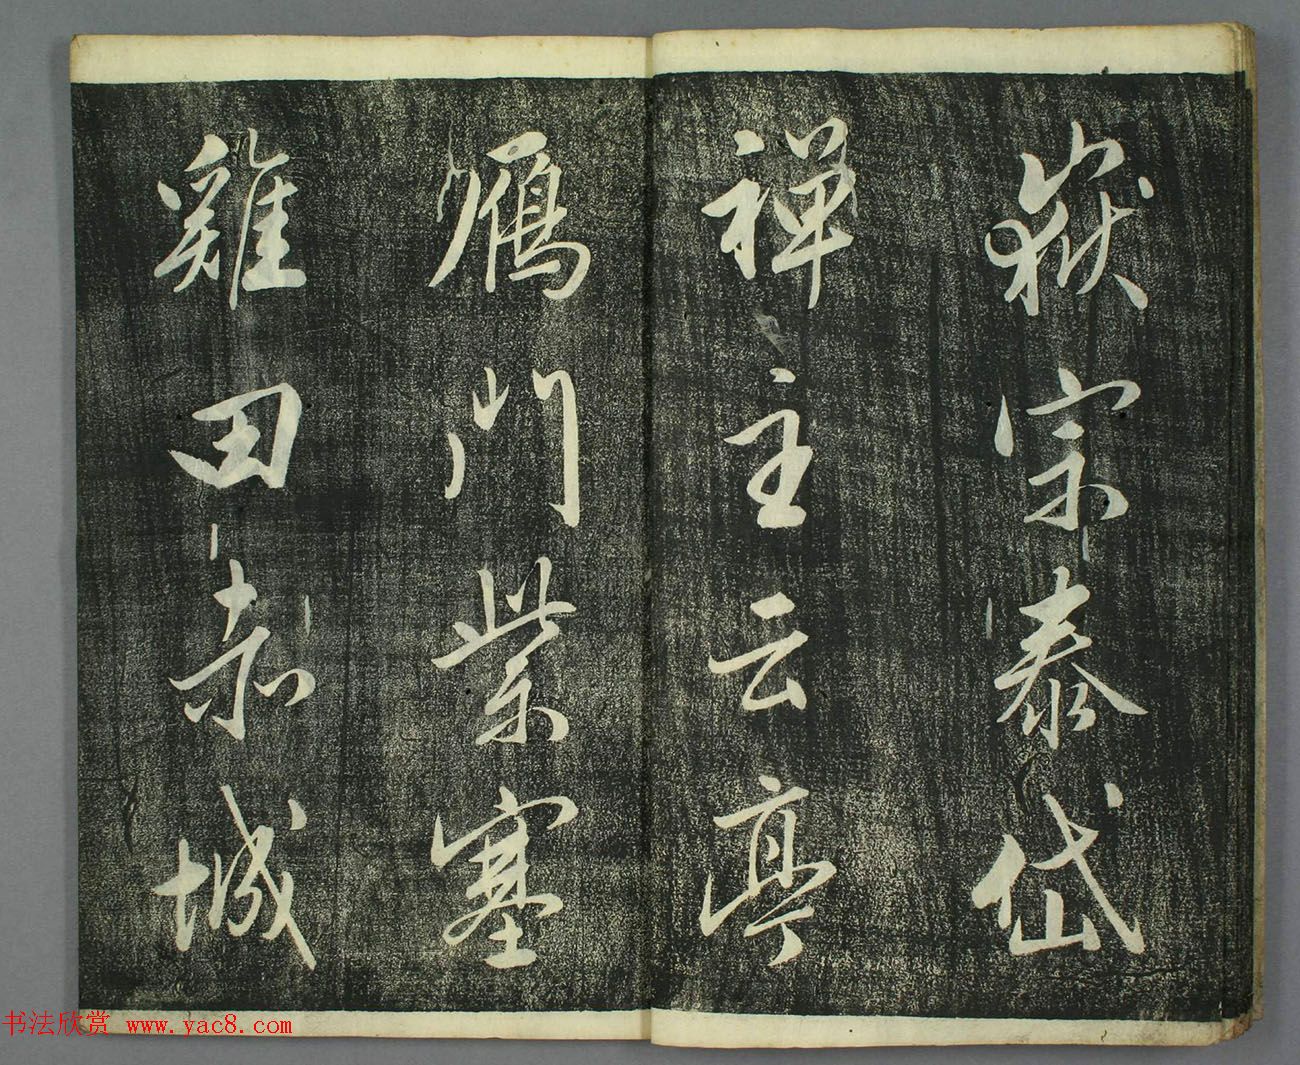 嶽宗泰岱
禪主云亭
鴈門紫塞
雞田赤城
书法欣赏 www.yac8.com